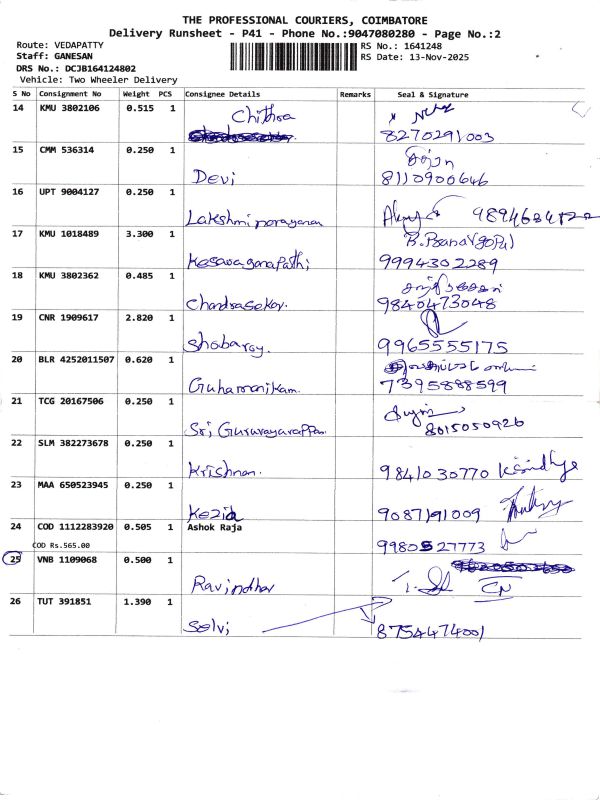 THE PROFESSIONAL COURIERS, COIMBATORE
Delivery Runsheet - P41 - Phone No.:9047080280 - Page No.:2
Route: VEDAPATTY
Staff: GANESAN
DRS No.: DCJB164124802
Vehicle: Two Wheeler Delivery
RS No.: 1641248
RS Date: 13-Nov-2025
S No Consignment No Weight PCS Consignee Details Remarks Seal & Signature
14 KMU 3802106 0.515 1 Chithra
8270291003
15 CMM 536314 0.250 1
Devi 8110900646
16 UPT 9004127 0.250 1
Lakshminarayanan
17 KMU 1018489 3.300 1
Kesavaganapathi 9994302289
18 KMU 3802362 0.485 1
Chandrasekar. 9840473048
19 CNR 1909617 2.820 1
Shobaroy. 9965555175
20 BLR 4252011507 0.620 1
Guhamanikam. 7395888599
21 TCG 20167506 0.250 1
Sri Guruvayurappan 8015050926
22 SLM 382273678 0.250 1
Krishnan. 9841030770
23 MAA 650523945 0.250 1
Kezia 9087191009
24 COD 1112283920 0.505 1 Ashok Raja
COD Rs.565.00 9980527773
25 VNB 1109068 0.500 1
Ravindhar
26 TUT 391851 1.390 1
Selvi 8754474001